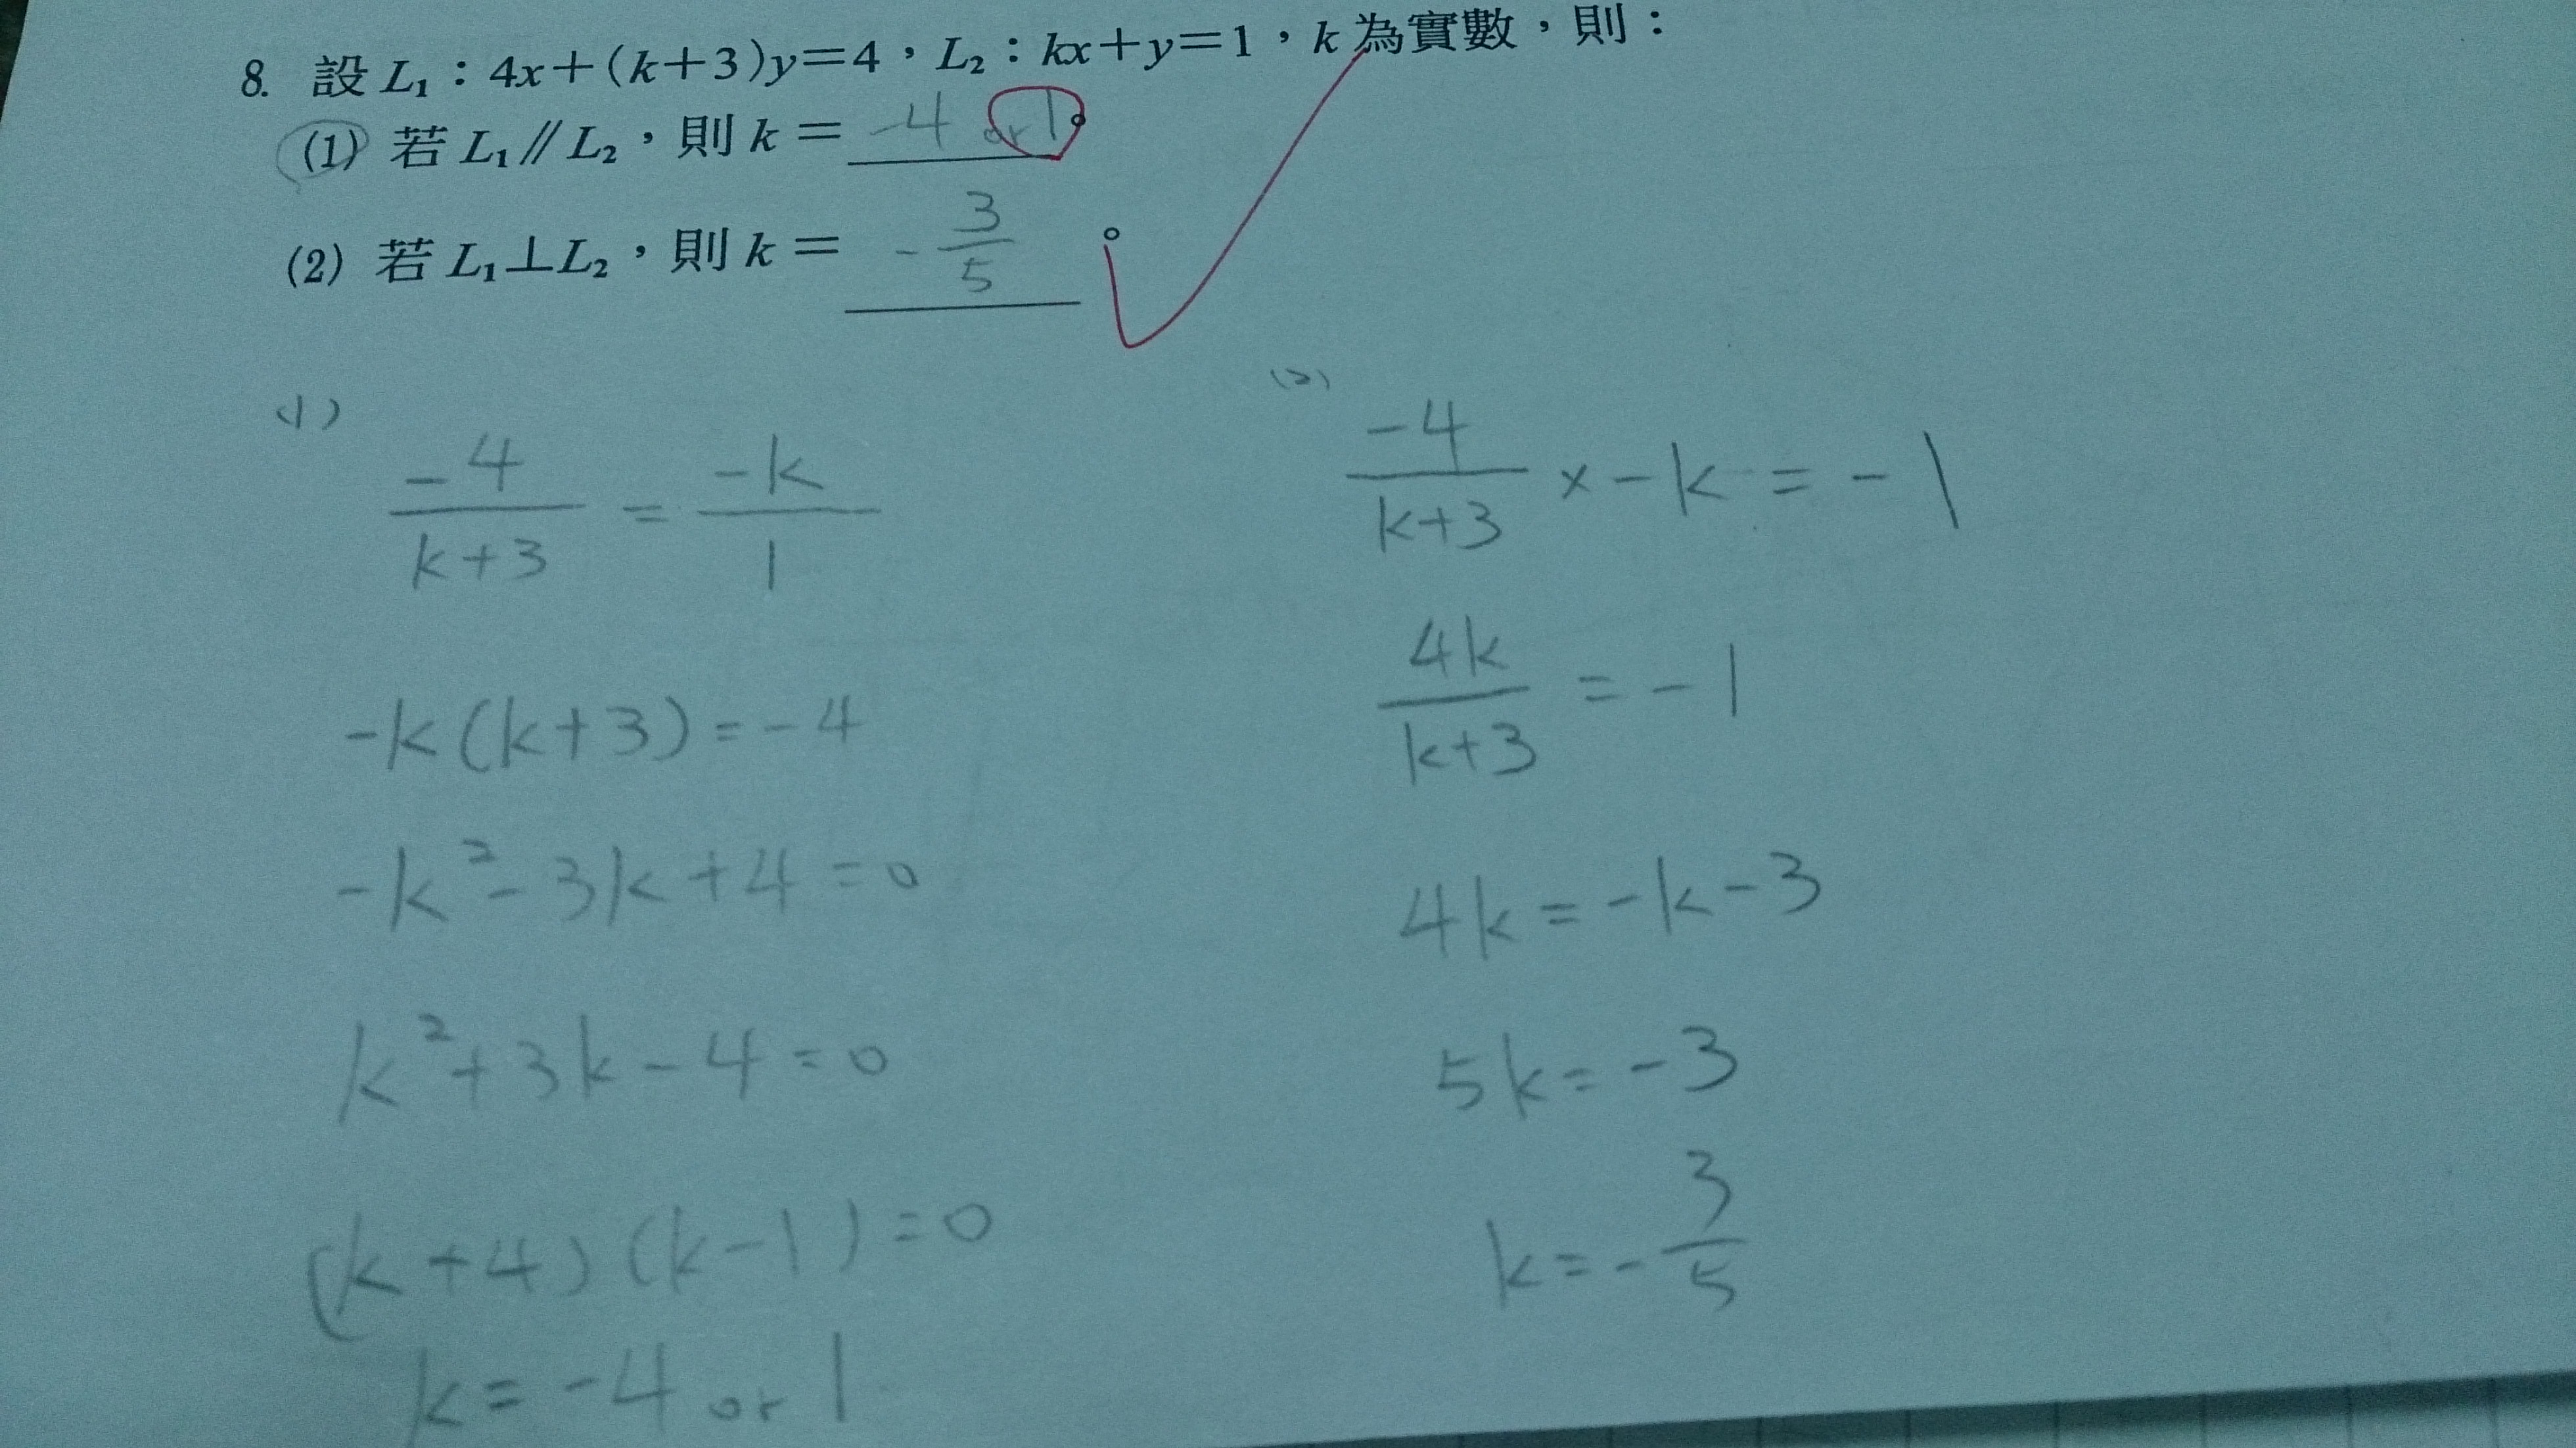 8. 設 L₁：4x＋(k＋3)y＝4，L₂：kx＋y＝1，k 為實數，則：
(1) 若 L₁∥L₂，則 k＝ -4 or 1。
(2) 若 L₁⊥L₂，則 k＝ -3/5 。
(1)
-4/(k+3) = -k/1
-k(k+3)=-4
-k²-3k+4=0
k²+3k-4=0
(k+4)(k-1)=0
k=-4 or 1
(2)
-4/(k+3) × -k = -1
4k/(k+3) = -1
4k=-k-3
5k=-3
k=-3/5